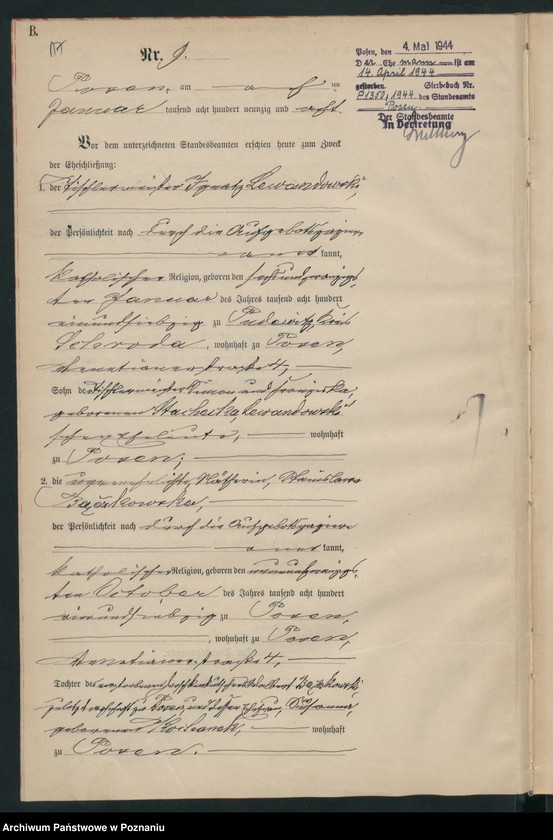 B.
Nr. 9.
Posen, am acht ten
Januar tausend acht hundert neunzig und acht.
Posen, den 4. Mai 1944
D ie Ehe ist am
14. April 1944
gestorben. Sterbebuch Nr.
P1350, 1944 des Standesamts
Posen
Der Standesbeamte
In Vertretung
Vor dem unterzeichneten Standesbeamten erschien heute zum Zweck
der Eheschließung:
1. der Tischlermeister Ignatz Lewandowski,
der Persönlichkeit nach durch die Aufgebotspapiere
aner kannt,
katholischer Religion, geboren den
ten Januar des Jahres tausend acht hundert
einundsiebzig zu Pudewitz, Kreis
Schroda, wohnhaft zu Posen,
Venetianerstraße 4,
Sohn des Tischlermeister Simon und Franziska,
geborenen Stachecka, Lewandowski
schen Eheleute, wohnhaft
zu Posen;
2. die unverehelichte Nähterin, Stanislawa
Bączkowska,
der Persönlichkeit nach durch die Aufgebotspapiere
aner kannt,
katholischer Religion, geboren den neunundzwanzigs-
ten October des Jahres tausend acht hundert
vierundsiebzig zu Posen,
, wohnhaft zu Posen,
Venetianerstraße 4,
Tochter des verstorbenen Bączkowski,
zuletzt wohnhaft zu Posen und dessen Ehefrau, Susanna,
geborenen wohnhaft
zu Posen.
Archiwum Państwowe w Poznaniu